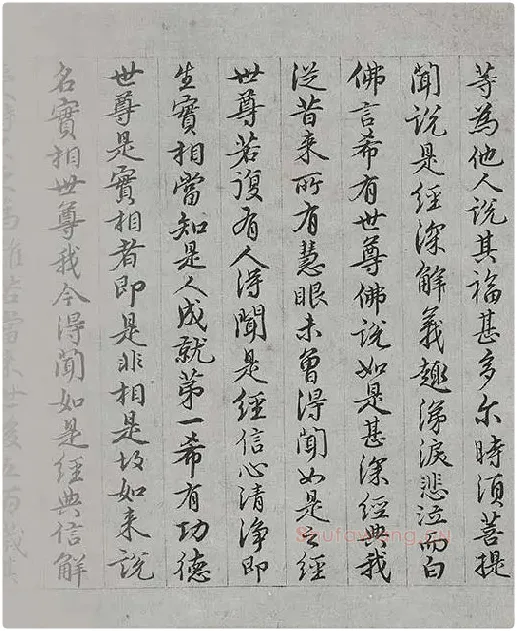 等為他人說其福甚多尒時須菩提
聞說是經深解義趣涕淚悲泣而白
佛言希有世尊佛說如是甚深經典我
從昔來所有慧眼未曾得聞如是之經
世尊若復有人得聞是經信心清淨即
生實相當知是人成就第一希有功德
世尊是實相者即是非相是故如來說
名實相世尊我今得聞如是經典信解
為難若當來世後五百歲其